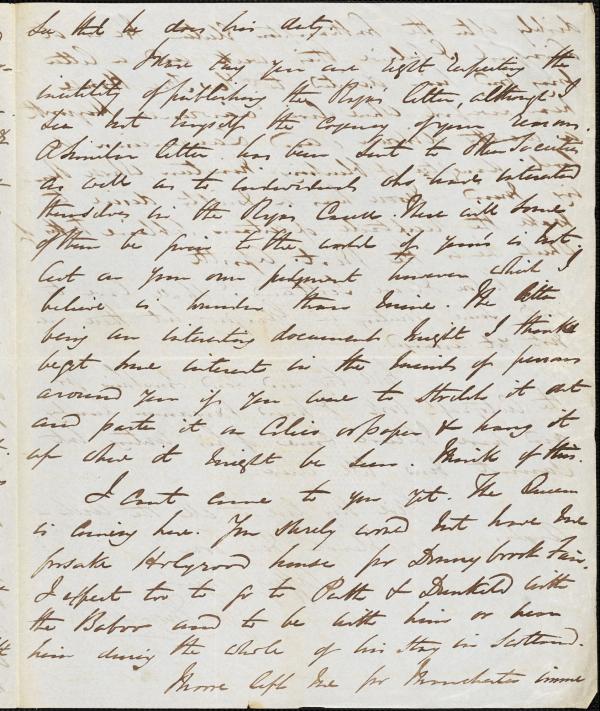 See that he does his duty
You say you are right respecting the
inutility of publishing the Rajas letter, although I
see not myself the cogency of your reasons.
A similar letter has been sent to other Societies
as well as to individuals who have interested
themselves in the Rajas Cause. There will some
of them be given to the world if yours is not.
Act on your own judgment however which I
believe is sounder than mine. The letter
being an interesting document might I think
beget some interest in the minds of persons
around you if you were to stretch it out
and paste it on Calico or paper & hang it
up where it might be seen. Think of this.
I cant come to you yet. The Queen
is coming here. You surely would not have me
forsake Holyrood house for Donnybrook Fair.
I expect too to go to Perth & Dunkeld with
the Baboo and to be with him or near
him during the whole of his stay in Scotland.
Moore left me for Manchester imme